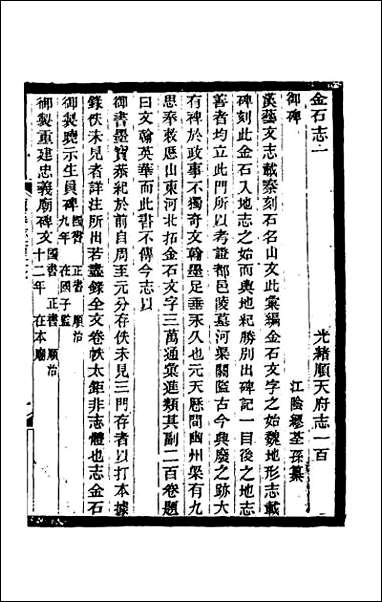 金石志一　光緒順天府志一百
江陰繆荃孫纂
御碑
漢藝文志載秦刻石名山文此彙編金石文字之始魏地形志載
碑刻此金石入地志之始而輿地紀勝別出碑記一目後之地志
善者均立此門所以考證都邑陵墓河渠關隘古今興廢之跡大
有裨於政事不獨奇文翰墨足垂永久也元天厯間幽州梁有九
思奉敕厯山東河北拓金石文字三萬通彙進類其副二百卷題
曰文翰英華而此書不傳今志以
御書墨寶恭紀於前自周至元分存佚未見三門存者以打本據
錄佚未見者詳注所出若盡錄全文卷帙太鉅非志體也志金石
御製曉示生員碑 國書 正書 順治九年 在國子監
御製重建忠義廟碑文 國書 正書 順治十二年 在本廟